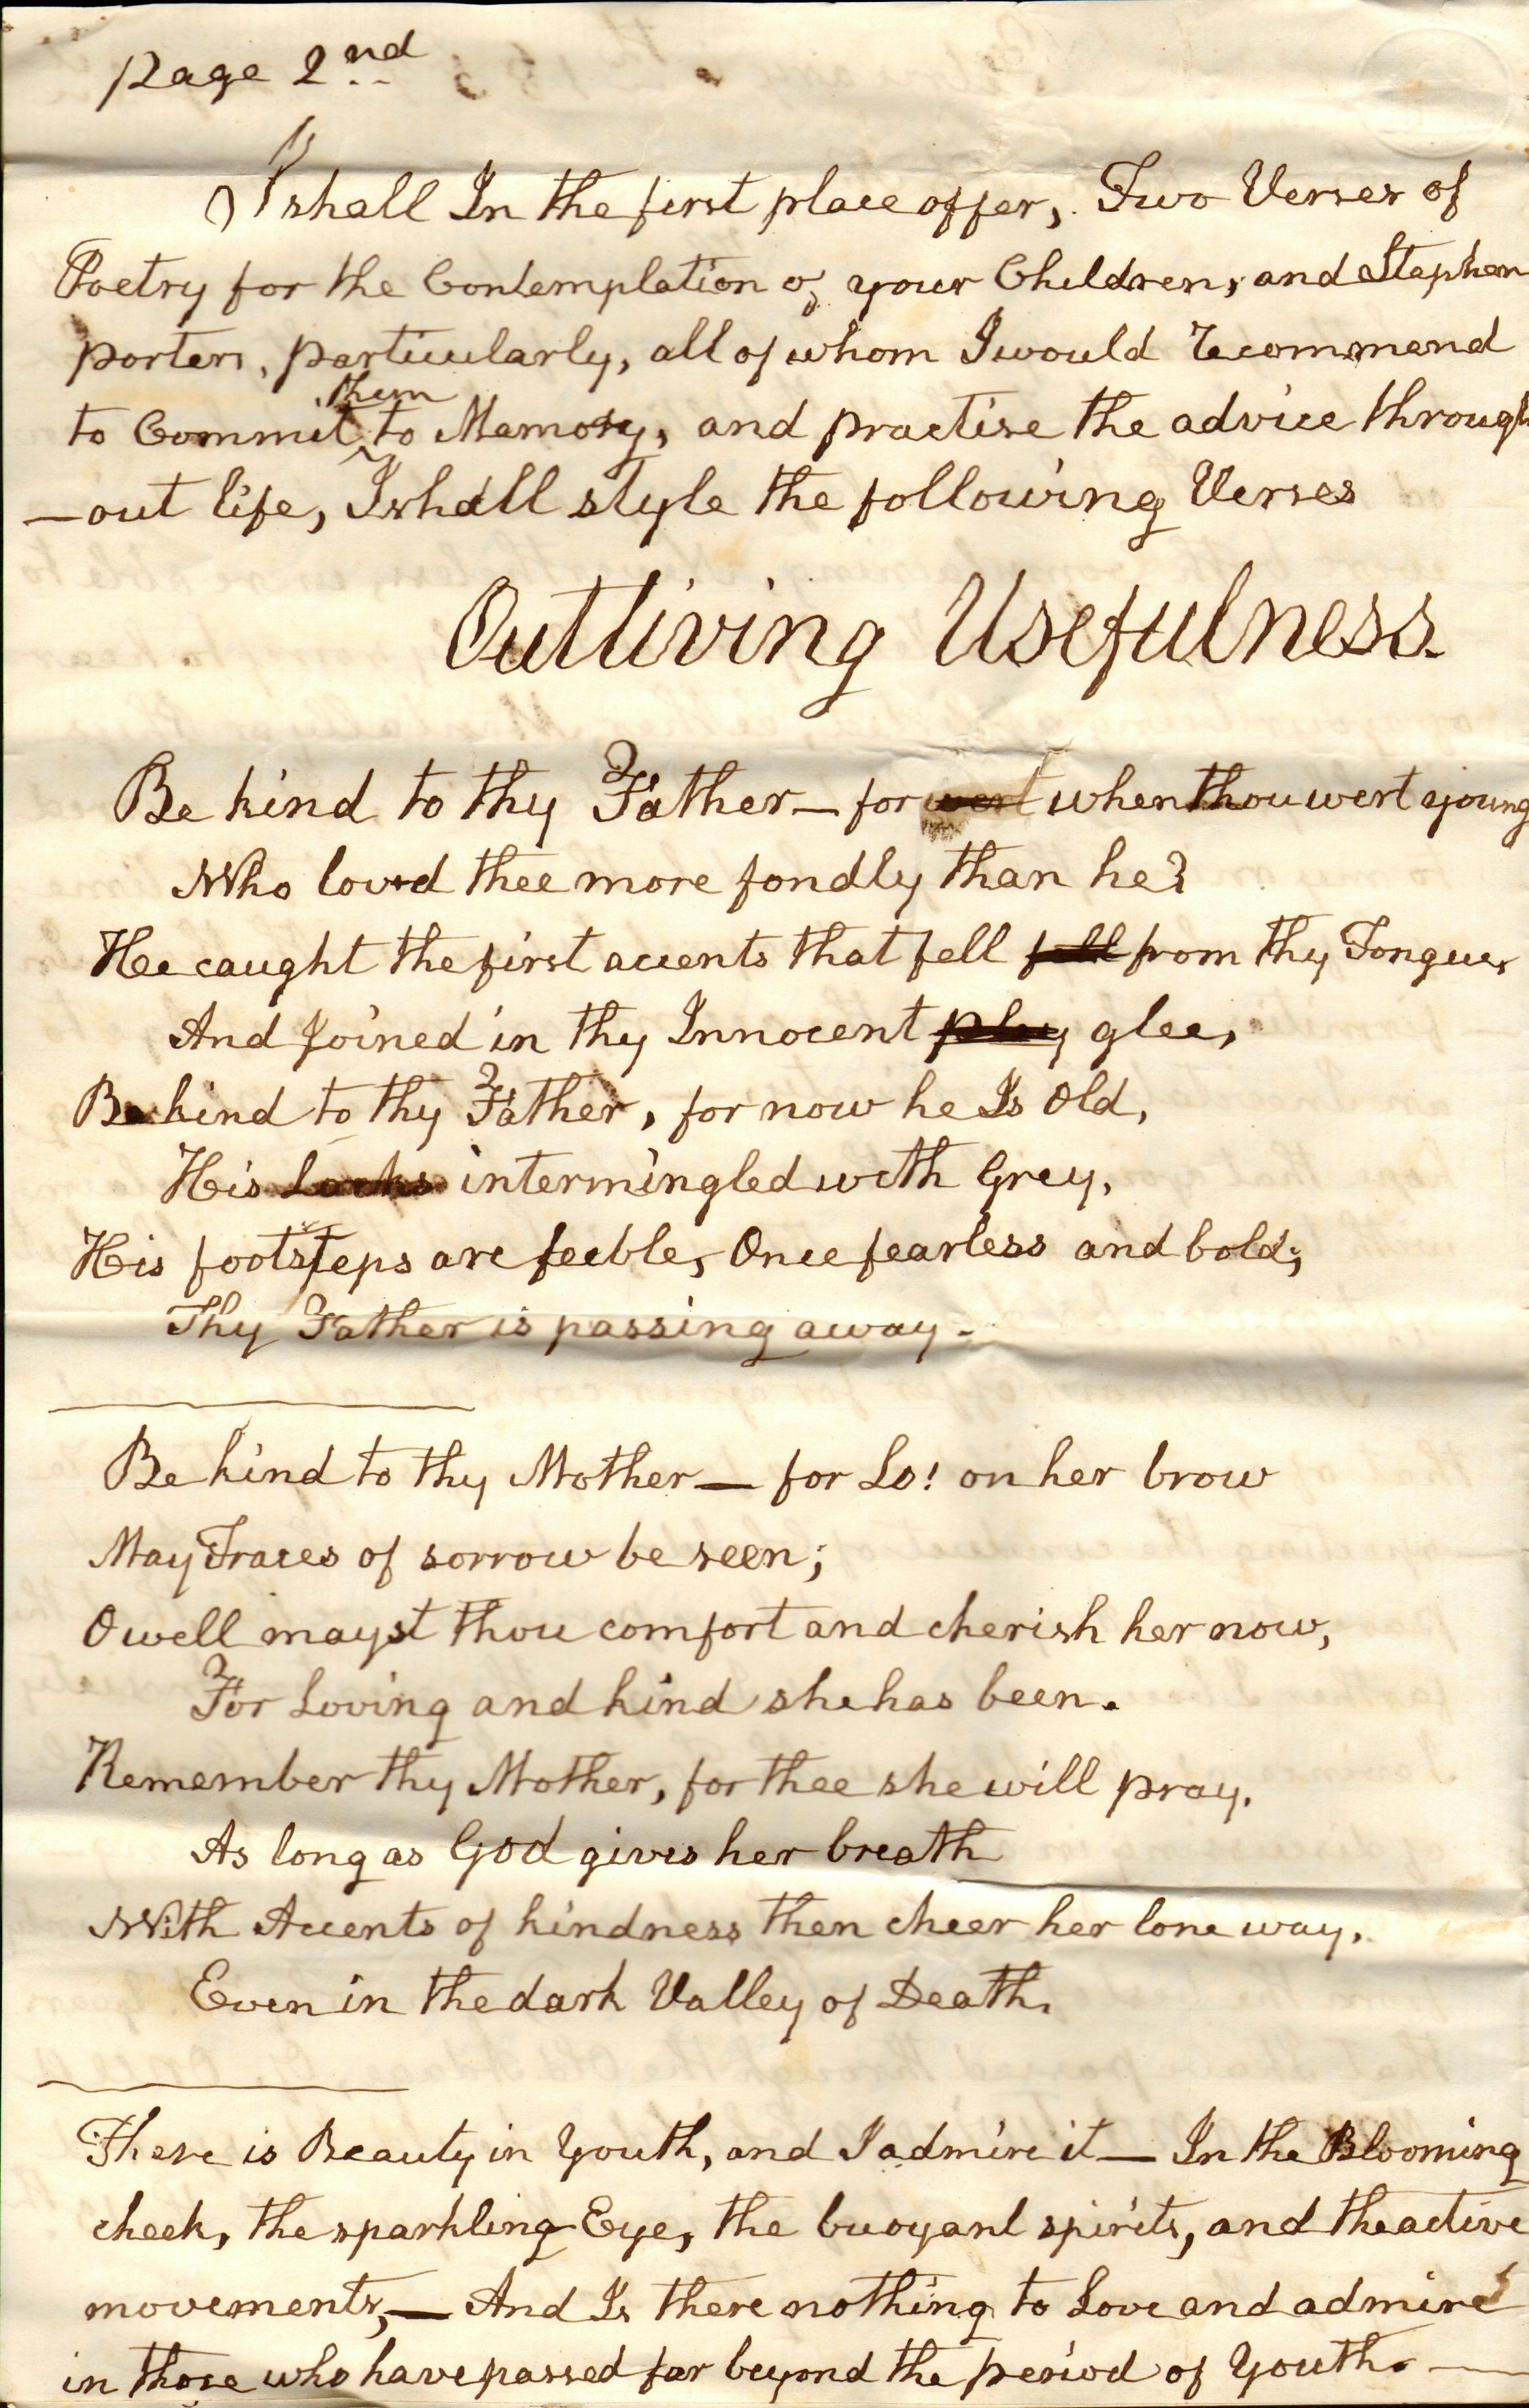 Page 2nd
I shall In the first place offer, Two Verses of
Poetry for the Contemplation of your Children, and Stephen
porters, particularly, all of whom I would recommend
them
to Commit to Memory, and practise the advice through
—out life, I shall style the following Verses
Outliving Usefulness.
Be kind to thy Father — for wert when thou wert young
Who loved thee more fondly than he?
He caught the first accents that fell fell from thy Tongue,
And Joined in thy Innocent play glee,
Be kind to thy Father, for now he Is Old,
His Locks intermingled with Grey,
His footsteps are feeble, Once fearless and bold;
Thy Father is passing away.
Be kind to thy Mother — for Lo! on her brow
May Traces of sorrow be seen;
O well mayst thou comfort and cherish her now,
For Loving and kind she has been.
Remember thy Mother, for thee she will pray.
As long as God gives her breath
With Accents of kindness then cheer her lone way.
Even in the dark Valley of Death.
There is Beauty in Youth, and I admire it — In the Blooming
cheek, the sparkling Eye, the buoyant spirits, and the active
movements, — And Is there nothing to Love and admire
in those who have passed far beyond the period of Youth. —